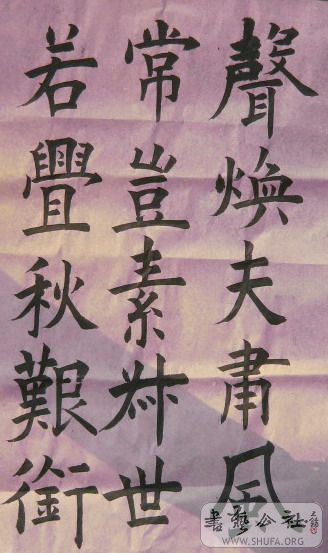 聲煥夫肅風
常豈素世
若舋秋艱銜
書藝公社
WWW.SHUFA.ORG